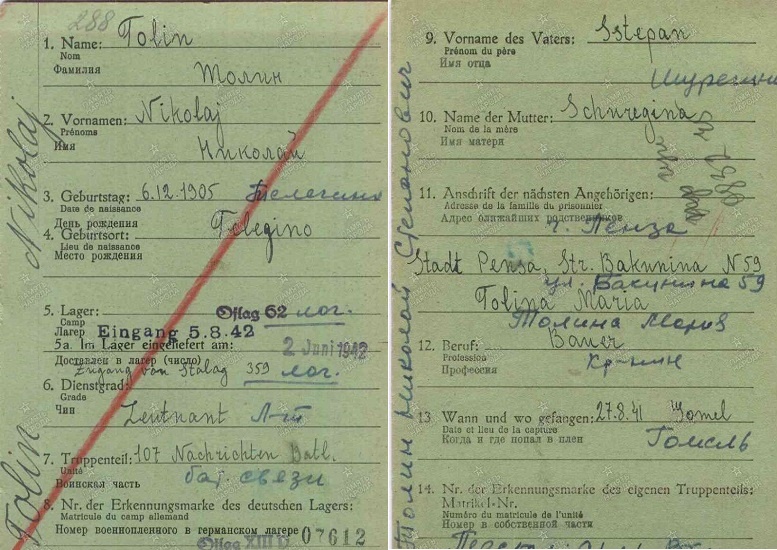 288
1. Name: Tolin
Nom
Фамилия
Толин
2. Vornamen: Nikolaj
Prénoms
Имя
Николай
3. Geburtstag: 6.12.1905
Date de naissance
День рождения
4. Geburtsort: Telegino
Lieu de naissance
Место рождения
5. Lager: Oflag 62 лаг.
Camp
Лагерь Eingang 5.8.42
5a. Im Lager eingeliefert am: 2 Juni 1942
Доставлен в лагерь (число)
Zugang von Stalag 359 лаг.
6. Dienstgrad: Leutnant Л-т
Grade
Чин
7. Truppenteil: 107 Nachrichten Batl.
Unité
Воинская часть бат. связи
8. Nr. der Erkennungsmarke des deutschen Lagers:
Matricule du camp allemand
Номер военнопленного в германском лагере 07612
Oflag XIII D
Tolin Nikolaj
9. Vorname des Vaters: Sstepan
Prénom du père
Имя отца
10. Name der Mutter: Schuregina
Nom de la mère
Имя матери
11. Anschrift der nächsten Angehörigen:
Adresse de la famille du prisonnier
Адрес ближайших родственников
г. Пенза
Stadt Pensa, Str. Bakunina N 59
ул. Бакунина 59
Tolina Maria
Толина Мария
12. Beruf: Bauer
Profession
Профессия
Кр-нин
13 Wann und wo gefangen: 27.8.41 Gomel
Date et lieu de la capture
Когда и где попал в плен
Гомель
14. Nr. der Erkennungsmarke des eigenen Truppenteils:
Matrikel-Nr.
Numéro du matricule de l'unité
Номер в собственной части
Толин Николай Степанович